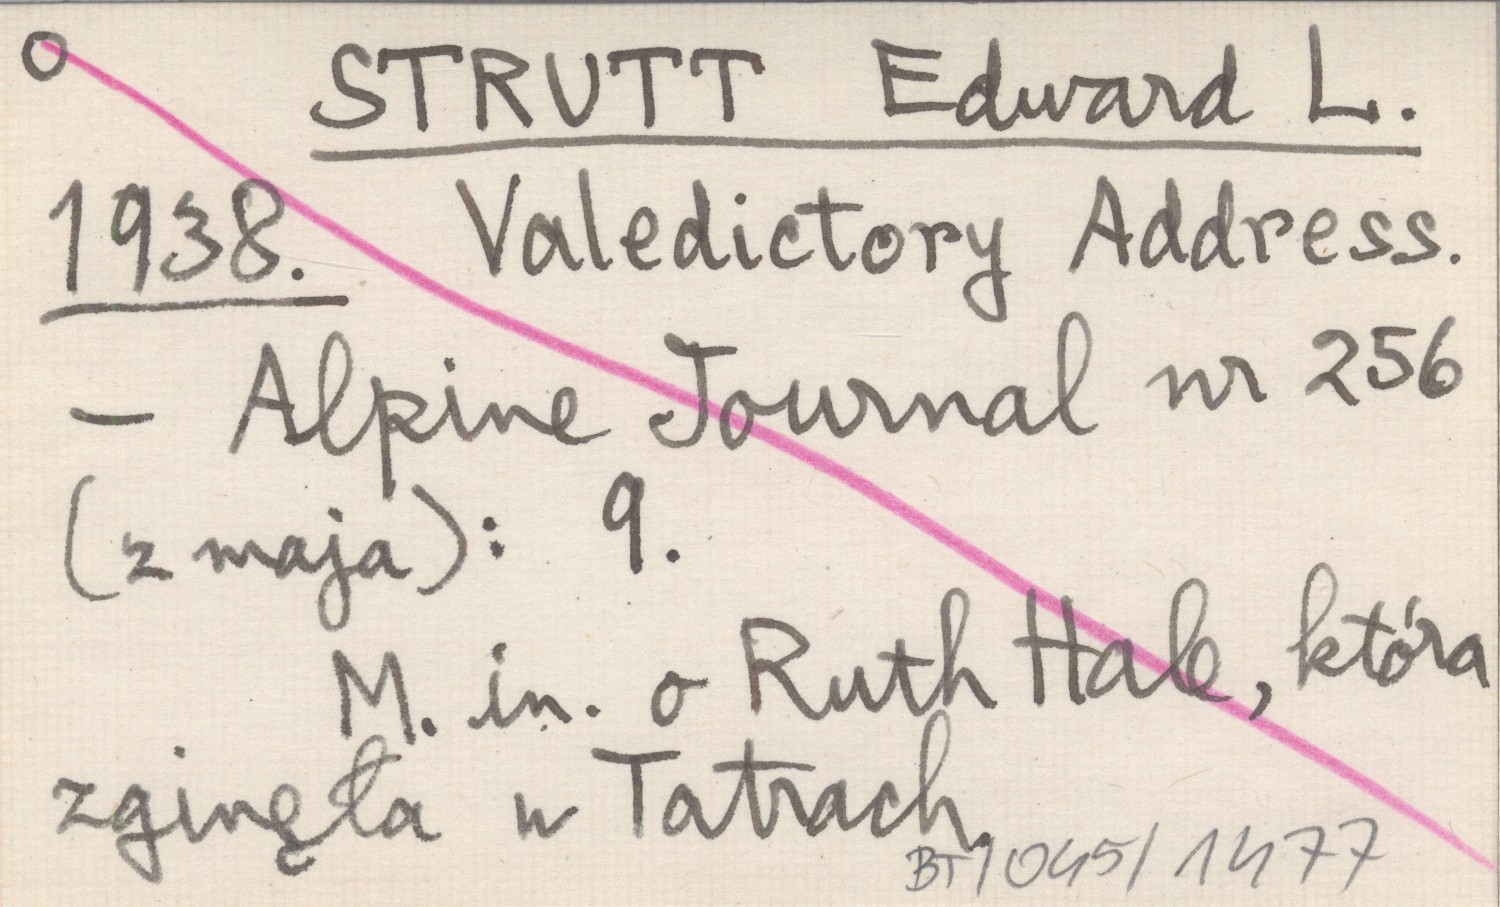 STRUTT Edward L.
1938. Valedictory Address.
– Alpine Journal nr 256
(z maja): 9.
M. in. o Ruth Hale, która
zginęła w Tatrach.
BT/045/1477